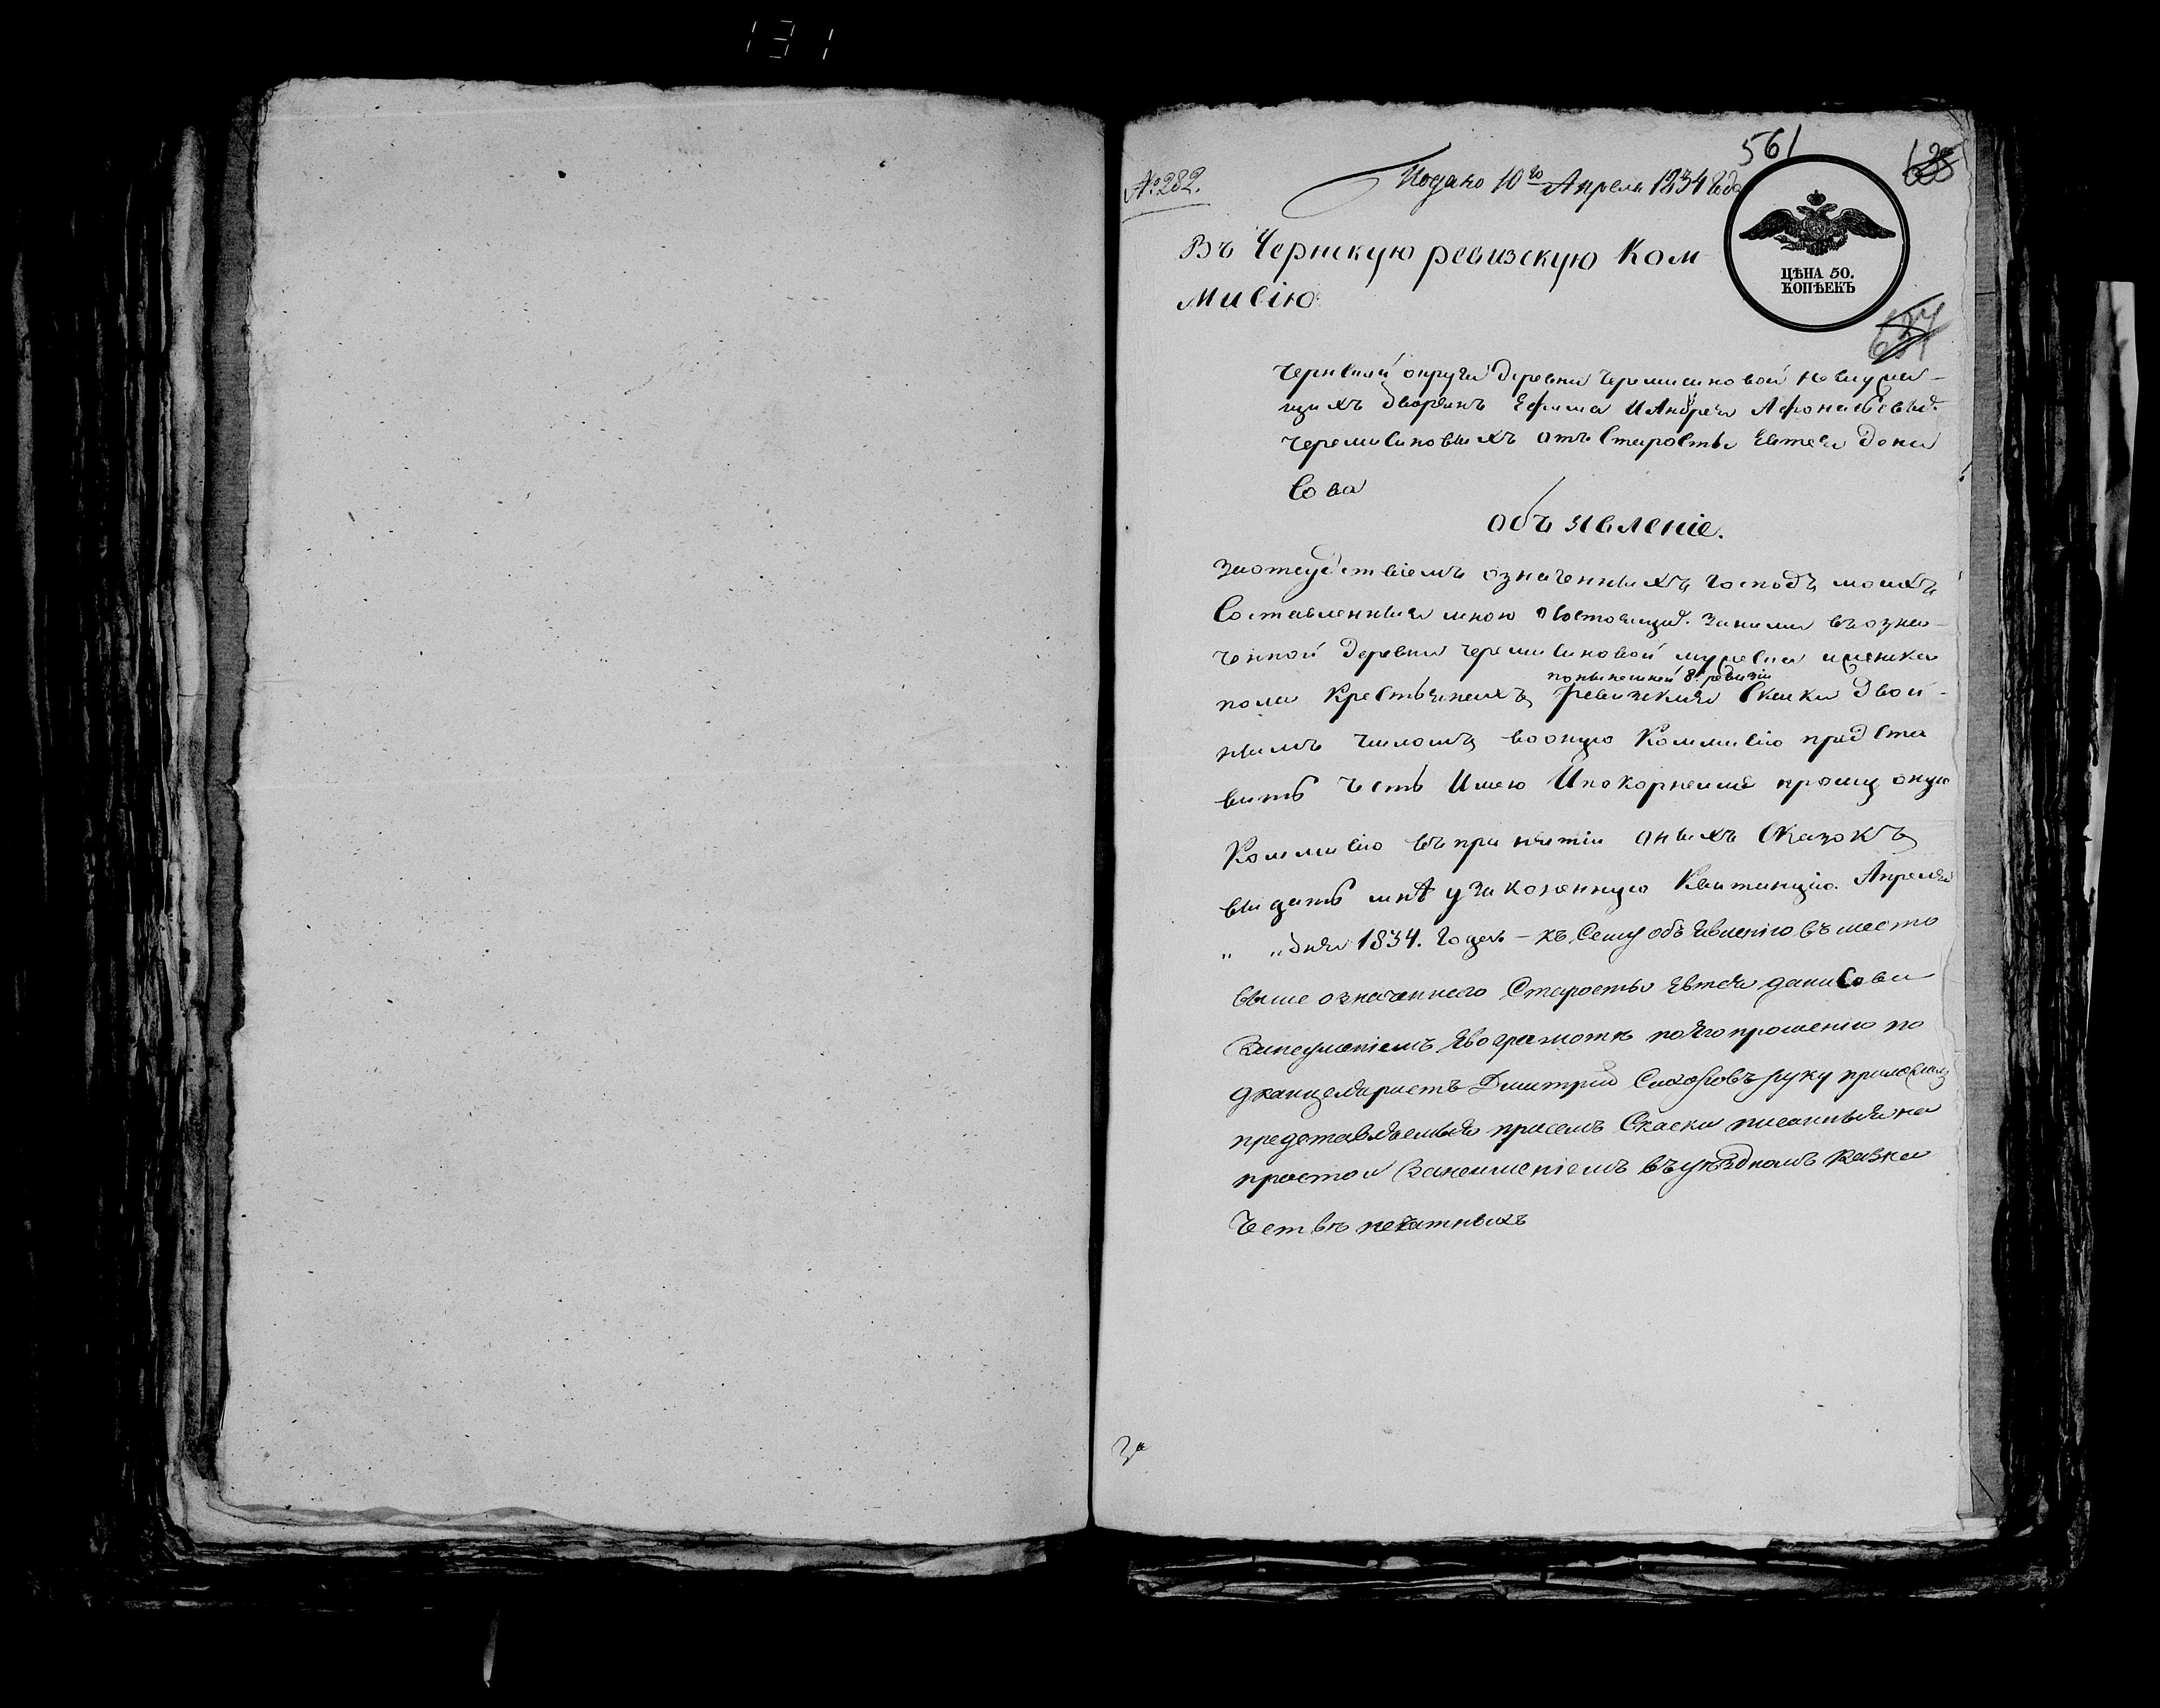 131
561
№ 282.
Подано 10го Апреля 1834 года
ЦѢНА 50.
КОПѢЕКЪ
Въ Чернскую ревизскую Ком
мисію
634
Чернской округи деревни Черемисиновой
дворянъ Ефима И Андрея Афонасьевыхъ
Черемисиновыхъ отъ Старосты Евтея Дени
сова
объявленіе.
Заотсудствіемъ означенныхъ господъ моихъ
Составленныя мною Осостоящих. заними въозна-
ченной деревни Черемисиновой мужеска иженска
понынешней 8й ревизіи
пола Крестьянехъ ревизския Скаски двои-
нымъ числомъ вооную Коммисію предста
вить Честь Имею Ипокорнеише прошу оную
Коммисію въпринятіи оныхъ Сказокъ
выдать мнѣ узаконенную Квитанцію. Апреля
„ „ дня 1834. Года – къ Сему объявленію въместо
выше означеннаго Старосты Евтея данисова
Занеуменіемъ Ево грамотѣ поЕго прошенію по
дканцеляристъ Дмитрий Сахаровъ руку приложилъ
предоставляемыя присемъ Скаски писанныя на
простой Занеимѣніемъ въуѣздномъ Казна
Чествѣ печатныхъ